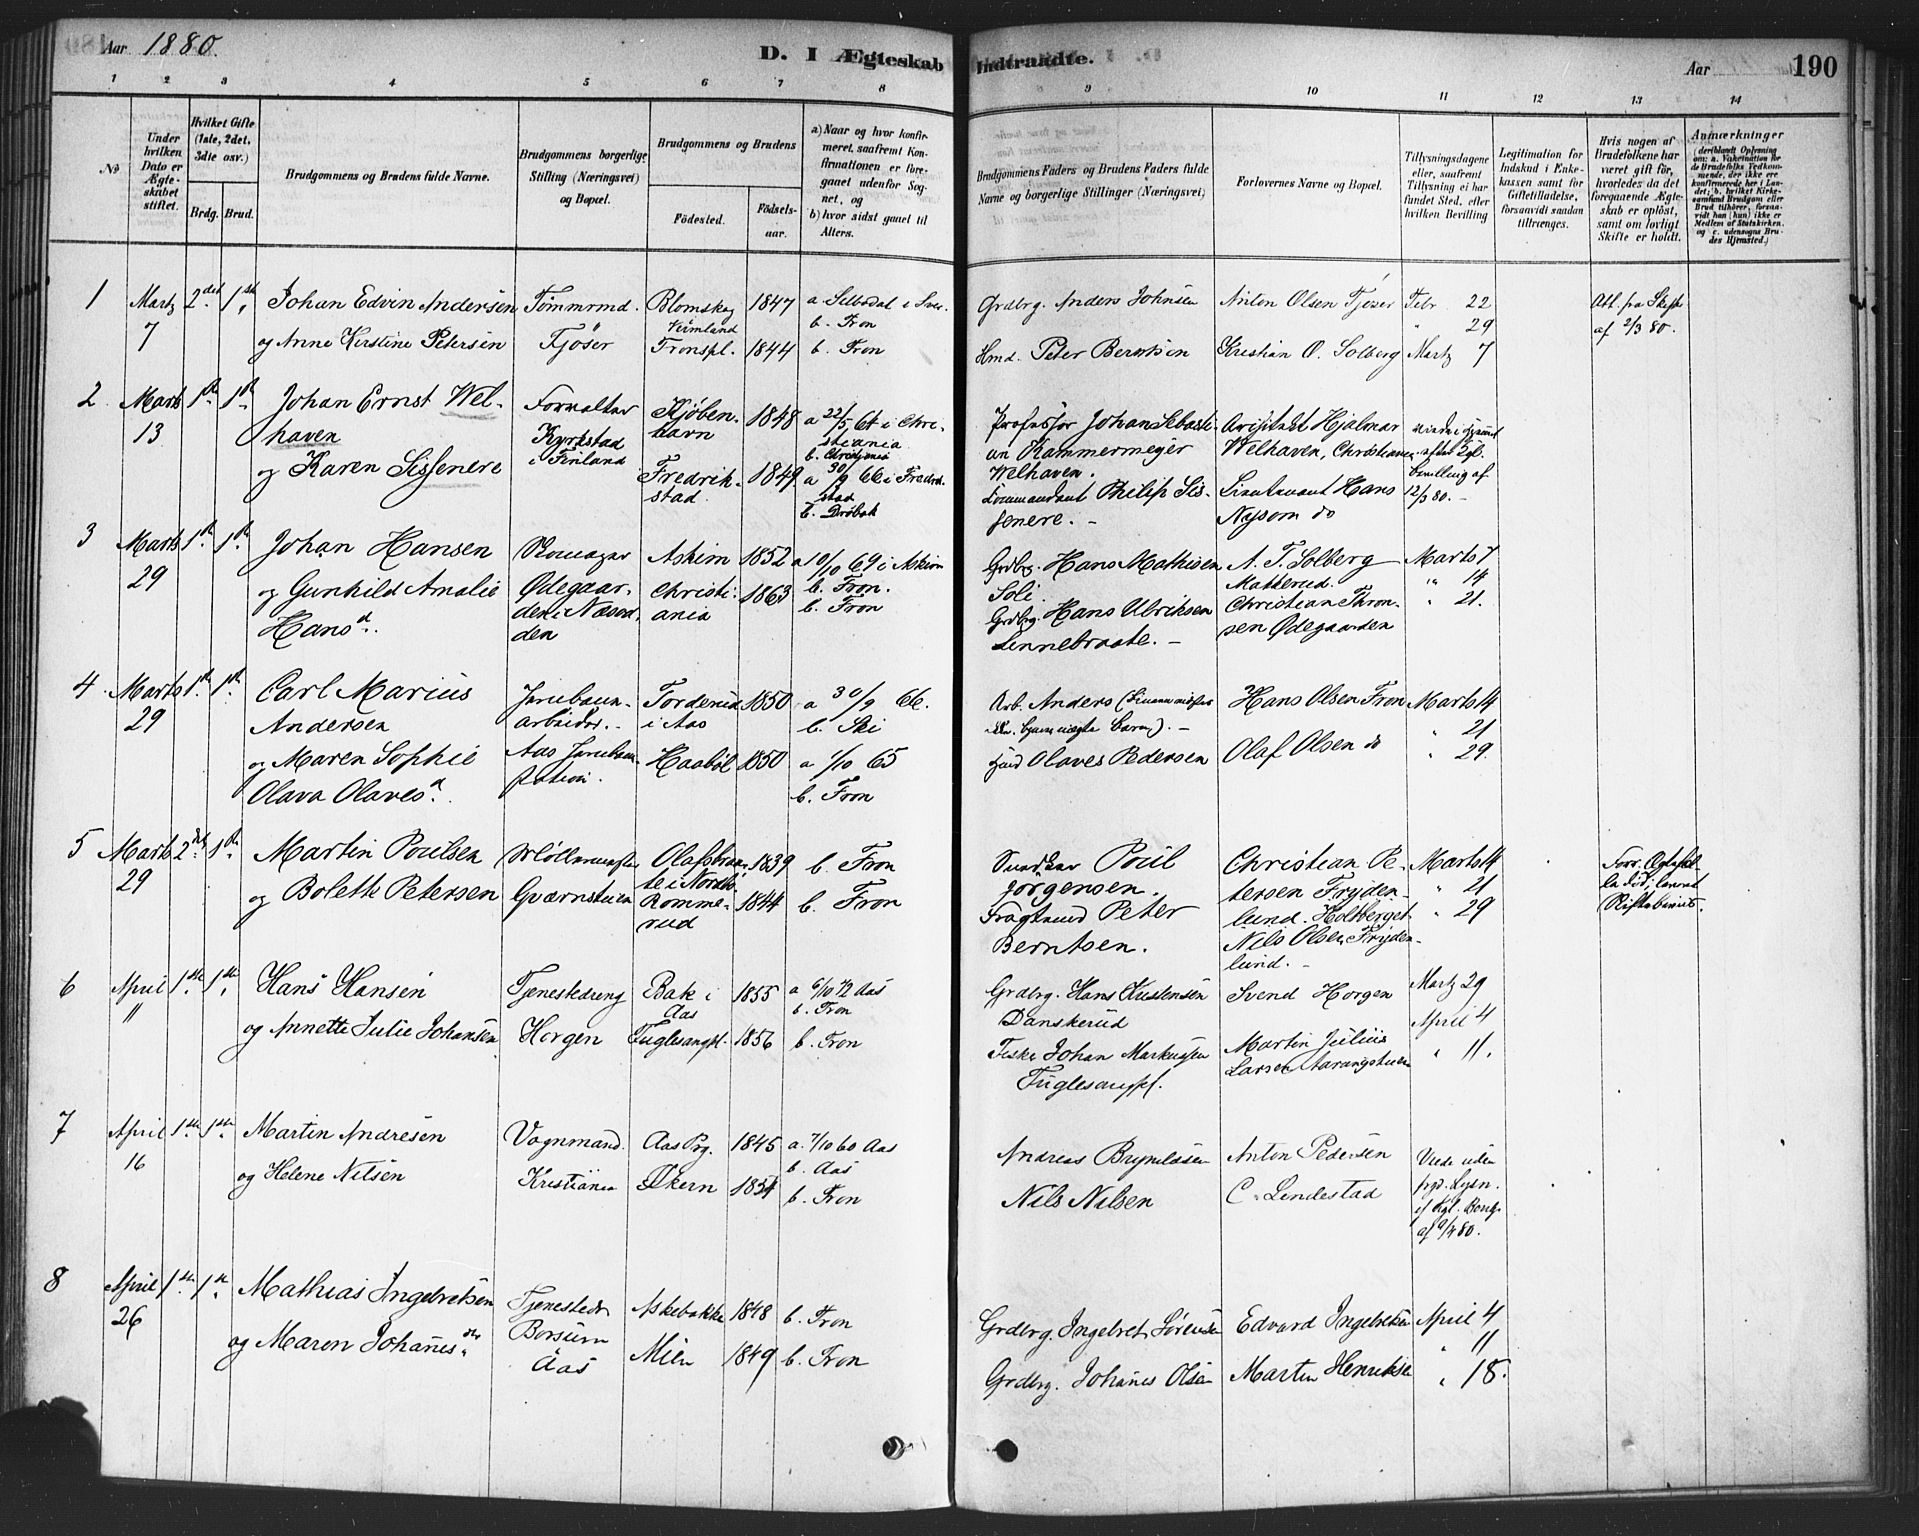 Aar 1880.
D. I Ægteskab
Indtraadte.
Aar
190
1 2 3 4 5 6 7 8 9 10 11 12 13 14
No
Under hvilken Dato er Ægteskabet stiftet.
Hvilket Gifte (1ste, 2det, 3die osv.)
Brdg. Brud.
Brudgommens og Brudens fulde Navne.
Brudgommens borgerlige Stilling (Næringsvei) og Bopæl.
Brudgommens og Brudens
Födested.
Födselsaar.
a) Naar og hvor konfirmeret, saafremt Konfirmationen er foregaaet udenfor Sognet, og
b) hvor sidst gaaet til Alters.
Brudgommens Faders og Brudens Faders fulde Navne og borgerlige Stillinger (Næringsvei)
Forlovernes Navne og Bopæl.
Tillysningsdagene eller, saafremt Tillysning ei har fundet Sted, efter hvilken Bevilling
Legitimation for Indskud i Enkekassen samt for Giftetilladelse, forsaavidt saadan tiltrænges.
Hvis nogen af Brudefolkene har været gift før, hvorledes da det foregaaende Ægteskab er oplöst, samt om lovligt Skifte er holdt.
Anmærkninger
1 Martz 7 2det 1ste
Johan Edvin Andersen
og Anne Kirstine Petersen
Tømrmd.
Tjöser
Blomskog
Vermland
Fronspl.
1847
1844
a Silbodal i Sver.
b. Fron
b. Fron
Grdbrg. Anders Johnsen
Hmd. Peter Berntsen
Anton Olsen Tjøser
Kristian O. Solberg
Febr 22
" 29
Martz 7
Att. fra Skifter
af 2/3 80.
2 Marts 13 1ste 1ste
Johan Ernst Welhaven
og Karen Sissenere
Forvalter
Kyrkstad
i Finland
Kjøbenhavn
Fredrikstad.
1848
1849
a 22/5 64 i Christiania
b. Christiania
a 30/9 66 i Fredrstad
b. Drøbak
Professor Johan Sebastian Kammermejer
Welhaven.
Commandant Philip Sissenere. -
Arkitekt Hjalmar
Welhaven, Christiania
Lieutenant Hans
Nysom do
bevilling af
12/3 80. -
3 Marts 29 1ste 1ste
Johan Hansen
og Gunhild Amalie
Hansd.
Skomager
Ødegaarden i Næsodden
Askim
Christiania
1852
1863
a 10/10 69 i Askim
b. Fron.
b. Fron
Grdbrg. Hans Mathisen
Soli.
Grdbrg. Hans Ulriksen
Linnebraate. -
A. T. Solberg
Katterud.
Christian Thronsen Ødegaarden
Marts 7
" 14
" 21.
4 Marts 29 1ste 1ste
Carl Marius
Andersen
og Maren Sophie
Olava Olavesd.
Jernbanearbeider. -
Aas Jernbanestation.
Torderud
i Aas
Haabøl
1850
1850
a 30/9 66.
b. Ski
a 1/10 65
b. Fron
Arb. Anders
Hmd Olaves Pedersen
Hans Olsen Fron
Olaf Olsen do
Marts 14
" 21
" 29.
5 Marts 29 2det 1ste
Martin Poulsen
og Bolette Petersen
Møllermester
Gværnstuen
Olafsbraate i Nordb.
Rommerud
1839
1844
b. Fron
b. Fron
Poul
Jörgensen.
Fragtmd Peter
Berntsen.
Christian Petersen Frydenlund. Holtberget
Nils Olsen Frydenlund. -
Marts 14
" 21
" 29
Skiftebevis.
6 April 11 1ste 1ste
Hans Hansen
og Annette Julie Johansen
Tjenestedreng
Horgen
Bak i
Aas
Fuglesangpl.
1855
1856
a 6/10 72 Aas
b. Fron
b. Fron
Grdbrg. Hans Kristensen
Danskerud
Fisker Johan Markussen
Fuglesangpl.
Svend Horgen
Martin Julius
Larsen Aarangstuen
Martz 29
April 4
" 11.
7 April 16 1ste 1ste
Martin Andresen
og Helene Nilsen
Vognmand
Kristiania
Aas Prg.
Økern
1845
1854
a. 7/10 60 Aas
b. Aas
b. Fron
Andreas Brynildsen
Nils Nilsen
Anton Pedersen
C. Lindestad
Viede uden
frgd. Lysn.
ef Kgl. Bevg.
af 9/4 80.
8 April 26 1ste 1ste
Mathias Ingebretsen
og Maren Johanesdtr
Tjenestedr
Borsum
Aas
Askebakke
Mien
1848
1849
b. Fron
b. Fron
Grdbrg. Ingebret Sørensen
Grdbrg. Johanes Olsen
Edvard Ingebretsen
Martin Henriksen
April 4
" 11
" 18.